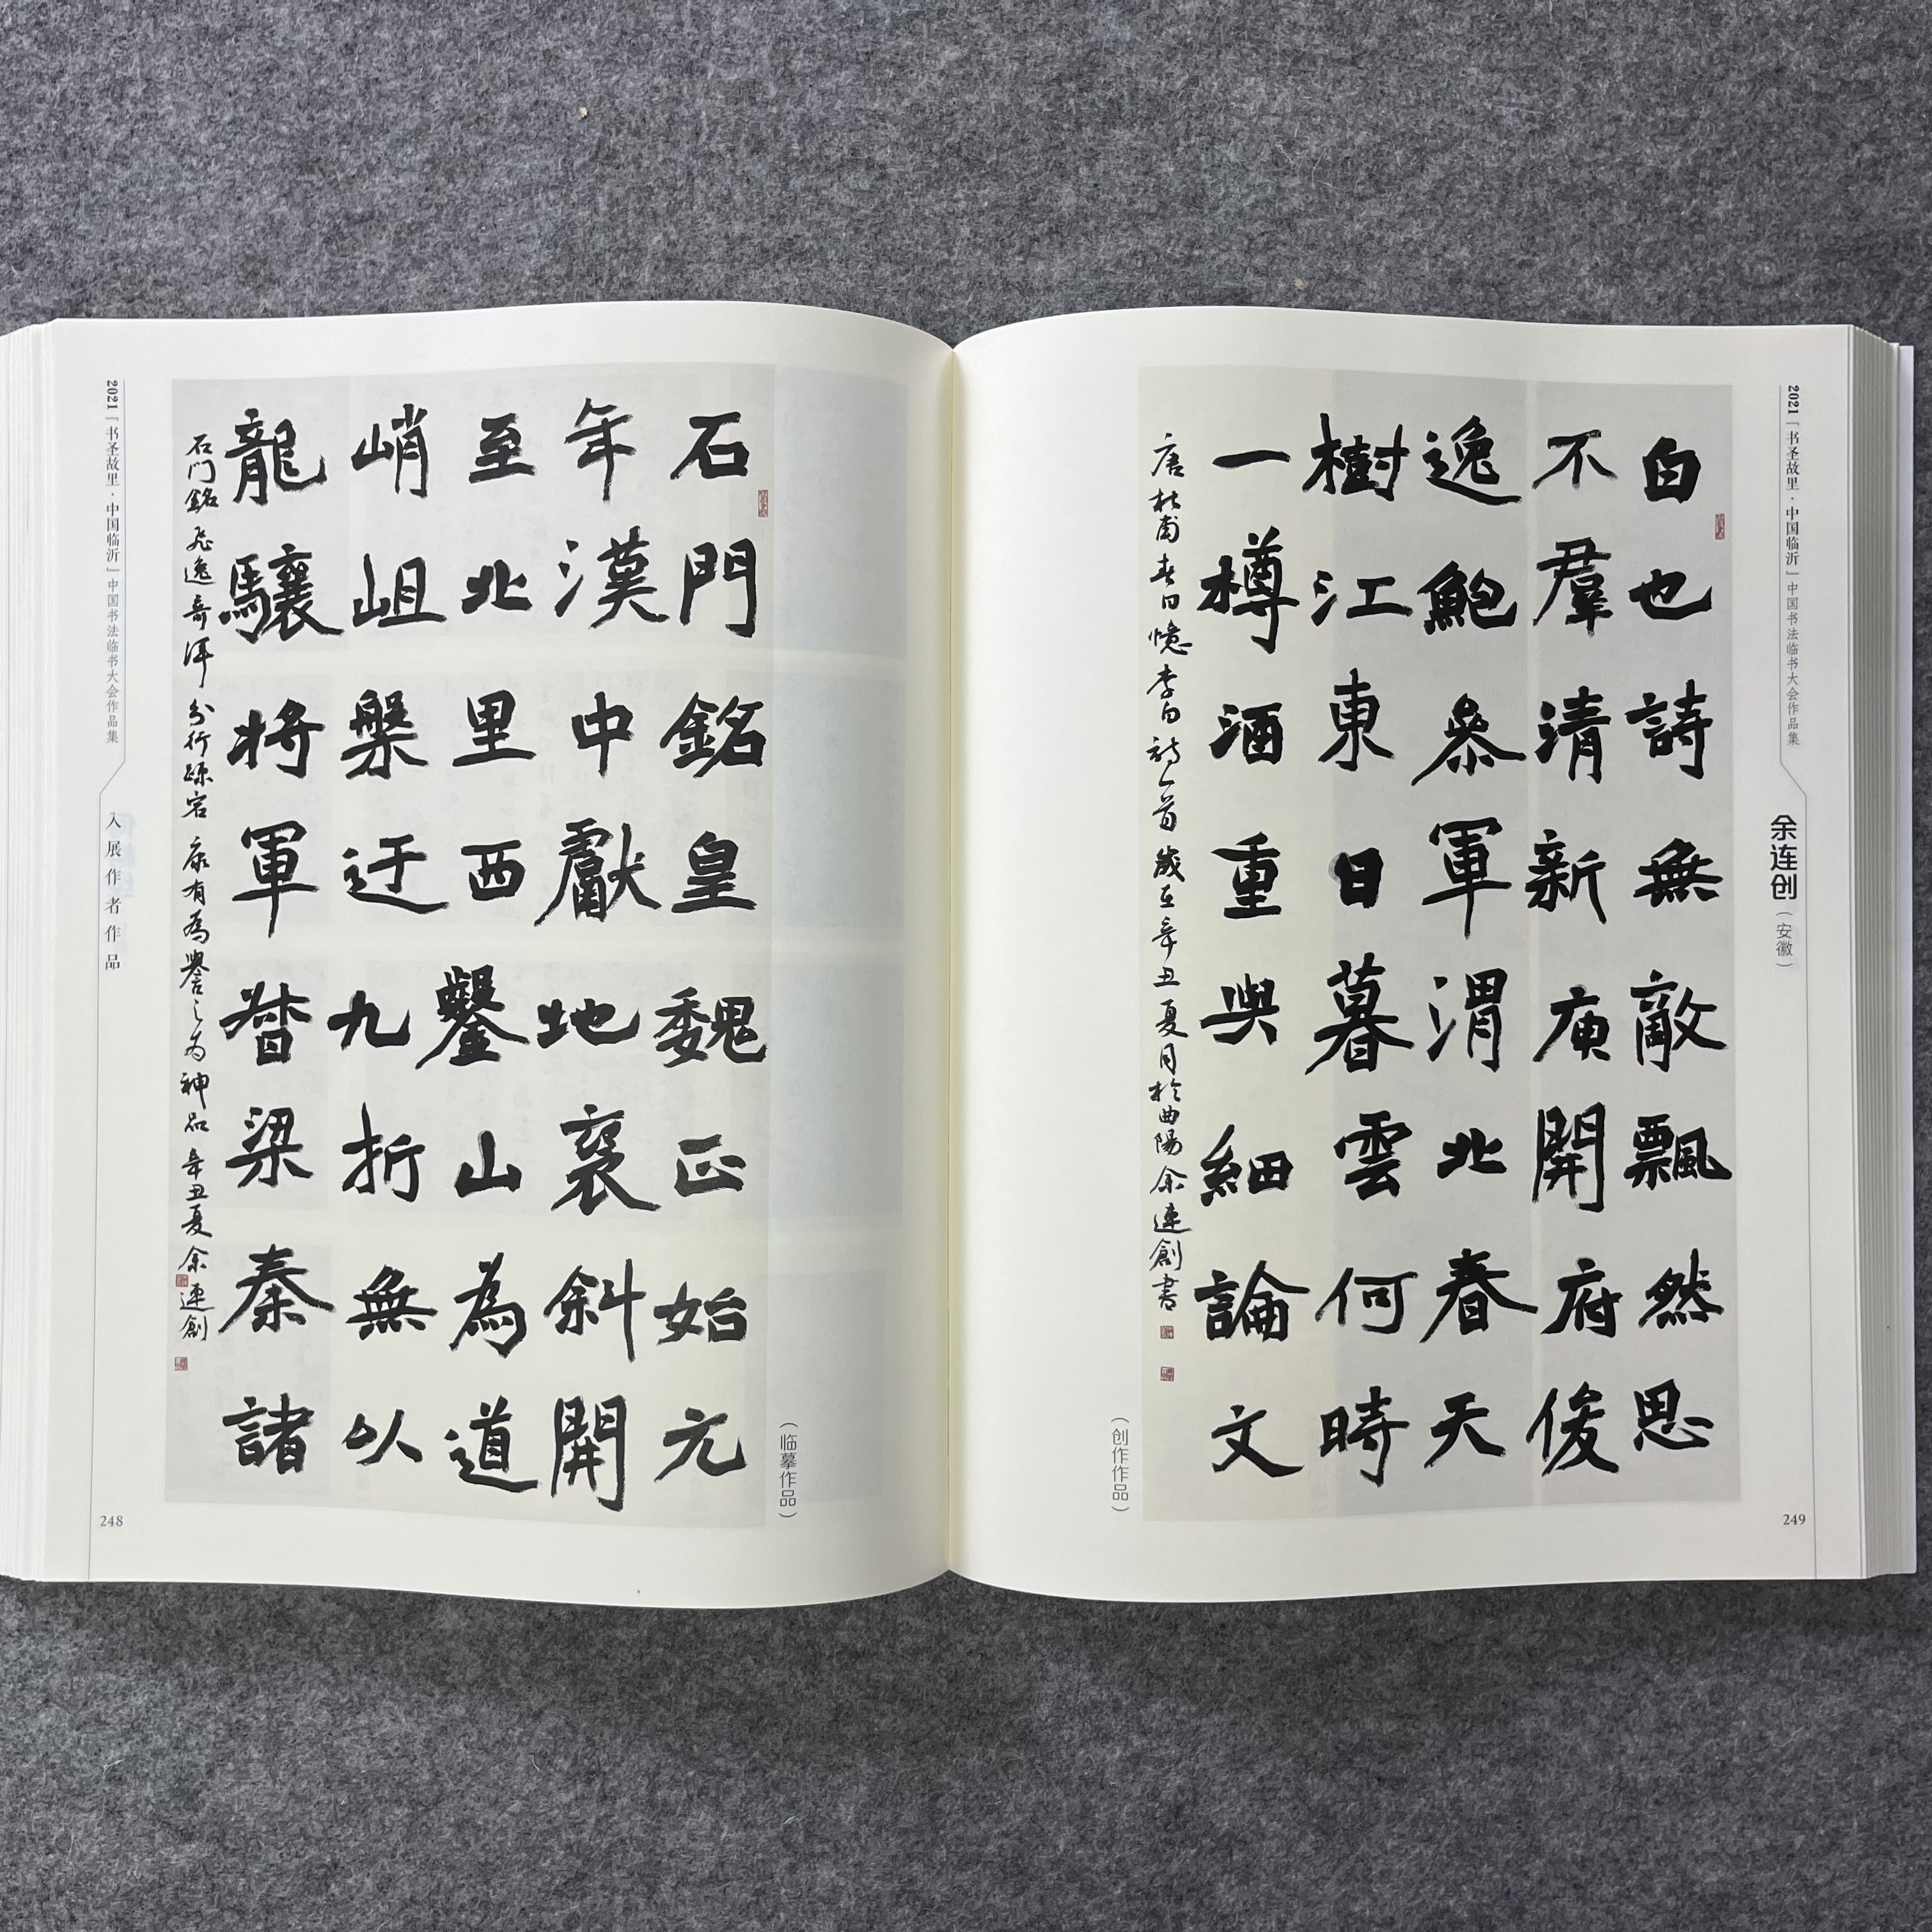 2021「书圣故里·中国临沂」中国书法临书大会作品集
入展作者作品
石門銘皇魏正始元
年漢中獻地褒斜開
至北里西鑿山為道
峭岨槃迂九折無以
龍驤將軍督梁秦諸
石門銘飛逸奇渾分行疏宕康有為譽之為神品辛丑夏余連創
(临摹作品)
248
2021「书圣故里·中国临沂」中国书法临书大会作品集
余连创(安徽)
白也詩無敵飄然思
不羣清新庾開府俊
逸鮑參軍渭北春天
樹江東日暮雲何時
一樽酒重與細論文
唐杜甫春日憶李白詩一首歲在辛丑夏月於曲陽余連創書
(创作作品)
249